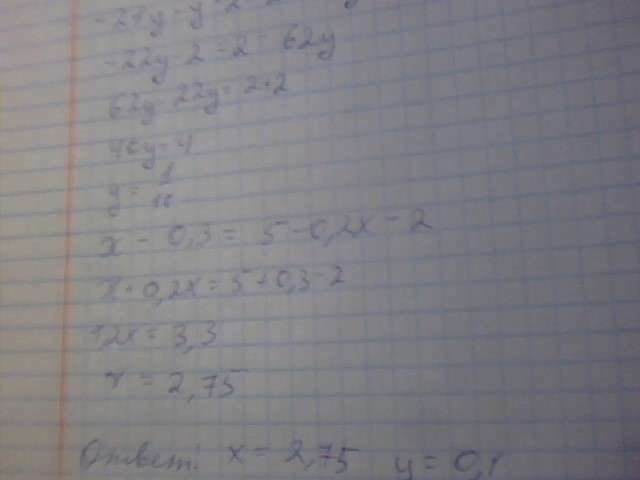 -22y 2 = 2 - 62y
62y 22y = 2+2
40y = 4
y =
x - 0,3 = 5 - 0,2x - 2
x + 0,2x = 5 + 0,3 - 2
1,2x = 3,3
x = 2,75
Ответ: x = 2,75 y = 0,1